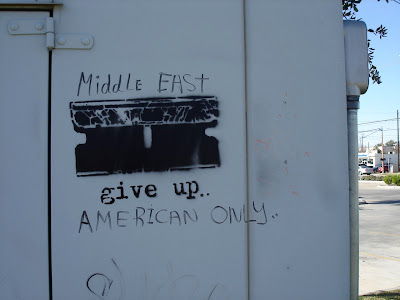 Middle EAST
give up..
AMERICAN ONLY..